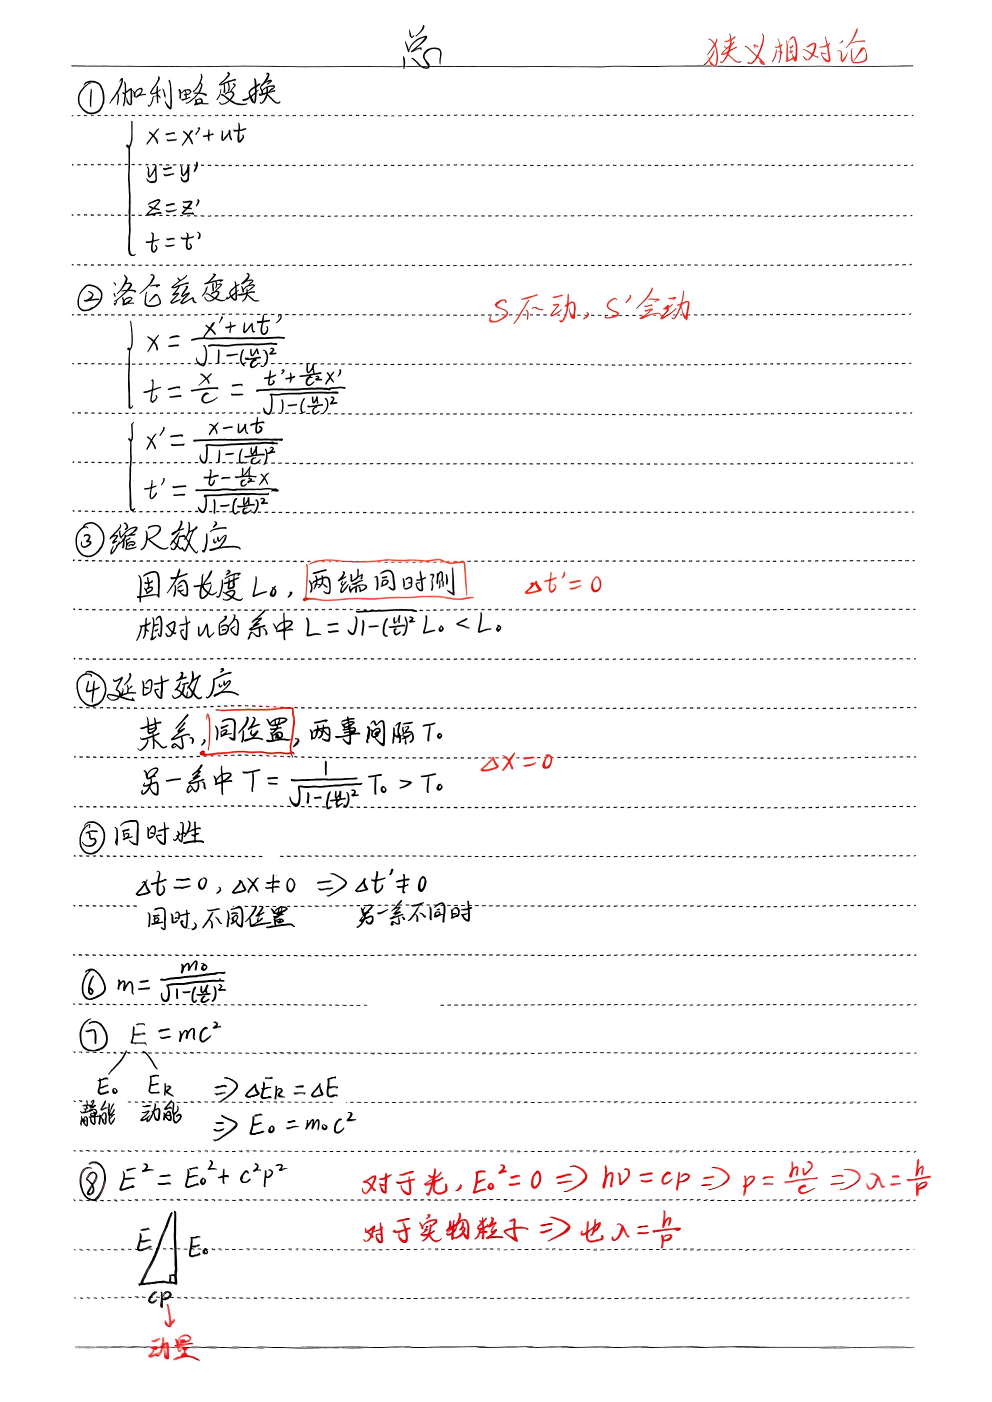 总
狭义相对论
①伽利略变换
x=x'+ut
y=y'
z=z'
t=t'
②洛仑兹变换
S不动, S'会动
x = (x'+ut')/√(1-(u/c)²)
t = x/c = (t'+(u/c²)x')/√(1-(u/c)²)
x' = (x-ut)/√(1-(u/c)²)
t' = (t-(u/c²)x)/√(1-(u/c)²)
③缩尺效应
固有长度L₀, 两端同时测 Δt'=0
相对u的系中 L=√(1-(u/c)²) L₀ < L₀
④延时效应
某系, 同位置, 两事间隔T₀
Δx=0
另一系中 T = 1/√(1-(u/c)²) T₀ > T₀
⑤同时性
Δt=0, Δx≠0 ⇒ Δt'≠0
同时, 不同位置 另一系不同时
⑥ m = m₀/√(1-(u/c)²)
⑦ E=mc²
E₀ Eₖ ⇒ ΔEₖ=ΔE
静能 动能
⇒ E₀=m₀c²
⑧ E²=E₀²+c²p² 对于光, E₀²=0 ⇒ hν=cp ⇒ p=hν/c ⇒ λ=h/p
对于实物粒子 ⇒ 也λ=h/p
E E₀
cp
↓
动量